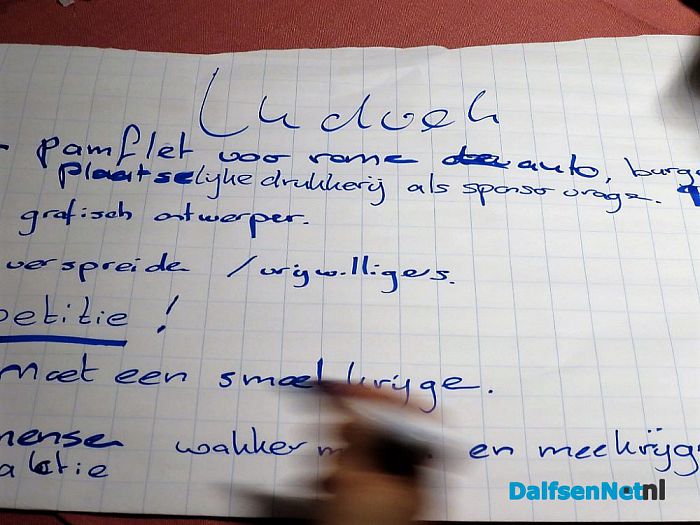 - pamflet voor rame auto, burg
plaatselijke drukkerij als sponso vrage.
grafisch ontwerper.
verspreide / vrijwilligers.
petitie !
Mœt een smoel krijge.
mensen wakker m en meekrijg
aktie
DalfsenNet.nl